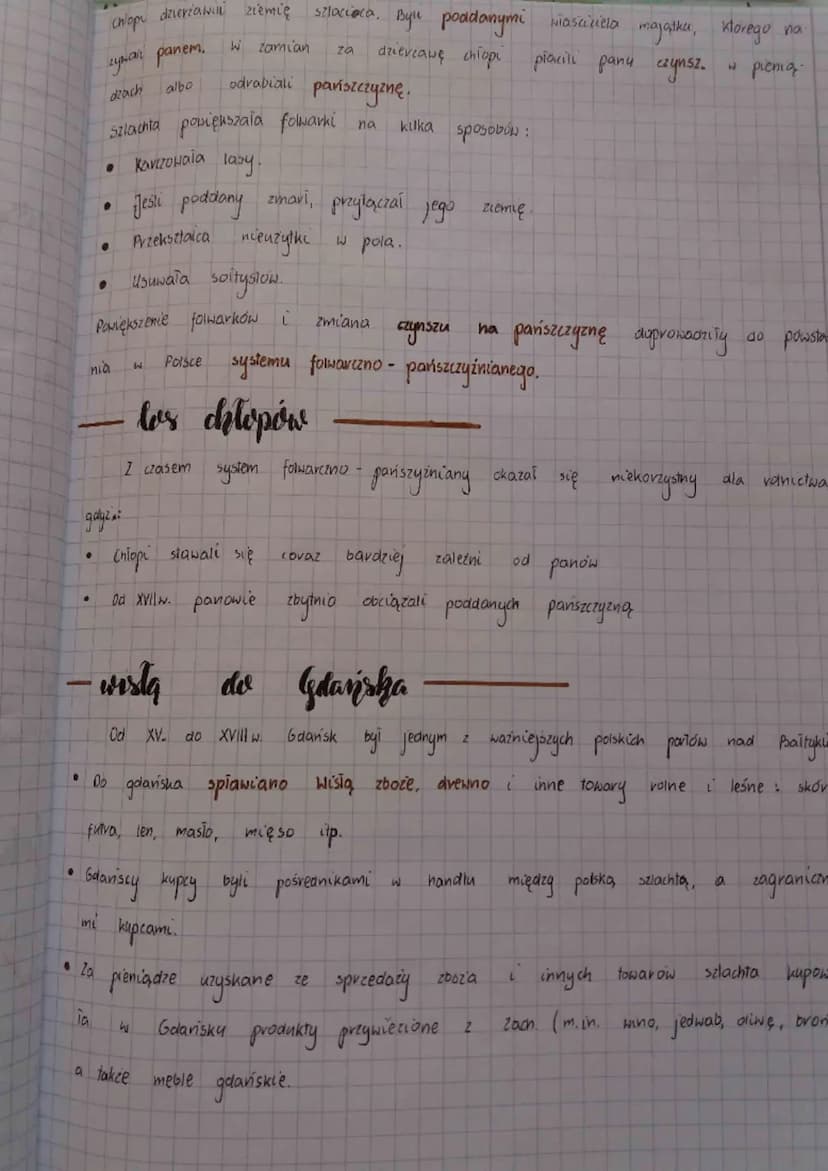 chłopi dzierżawili ziemię szlachecą. Byli poddanymi właściciela majątku, którego na
zywali panem. W zamian za dzierżawę chłopi płacili panu czynsz. w pienią-
dzach albo odrabiali pańszczyznę.
Szlachta powiększała folwarki na kilka sposobów:
• Karczowała lasy.
• Jeśli poddany zmarł, przyłączał jego ziemię.
• Przekształca nieużytki w pola.
• Usuwała sołtysów.
Powiększenie folwarków i zmiana czynszu na pańszczyznę doprowadziły do powsta
nia w Polsce systemu folwarczno - pańszczyźnianego.
los chłopów
Z czasem system folwarczno - pańszyźniany okazał się niekorzystny dla rolnictwa
gdyż:
• Chłopi stawali się coraz bardziej zależni od panów
• Od XVII w. panowie zbytnio obciążali poddanych pańszczyzną
wisłą do Gdańska
Od XV. do XVIII w. Gdańsk był jednym z ważniejszych polskich portów nad Bałtyki
• Do gdańska spławiano Wisłą zboże, drewno i inne towary rolne i leśne: skór
futra, len, masło, mięso itp.
• Gdańscy kupcy byli pośrednikami w handlu między polską szlachtą, a zagraniczn
mi kupcami.
• Za pieniądze uzyskane ze sprzedaży zboża i innych towarów szlachta kupow
ła w Gdańsku produkty przywiezione z zach. (m.in. wino, jedwab, oliwę, broń
a także meble gdańskie.